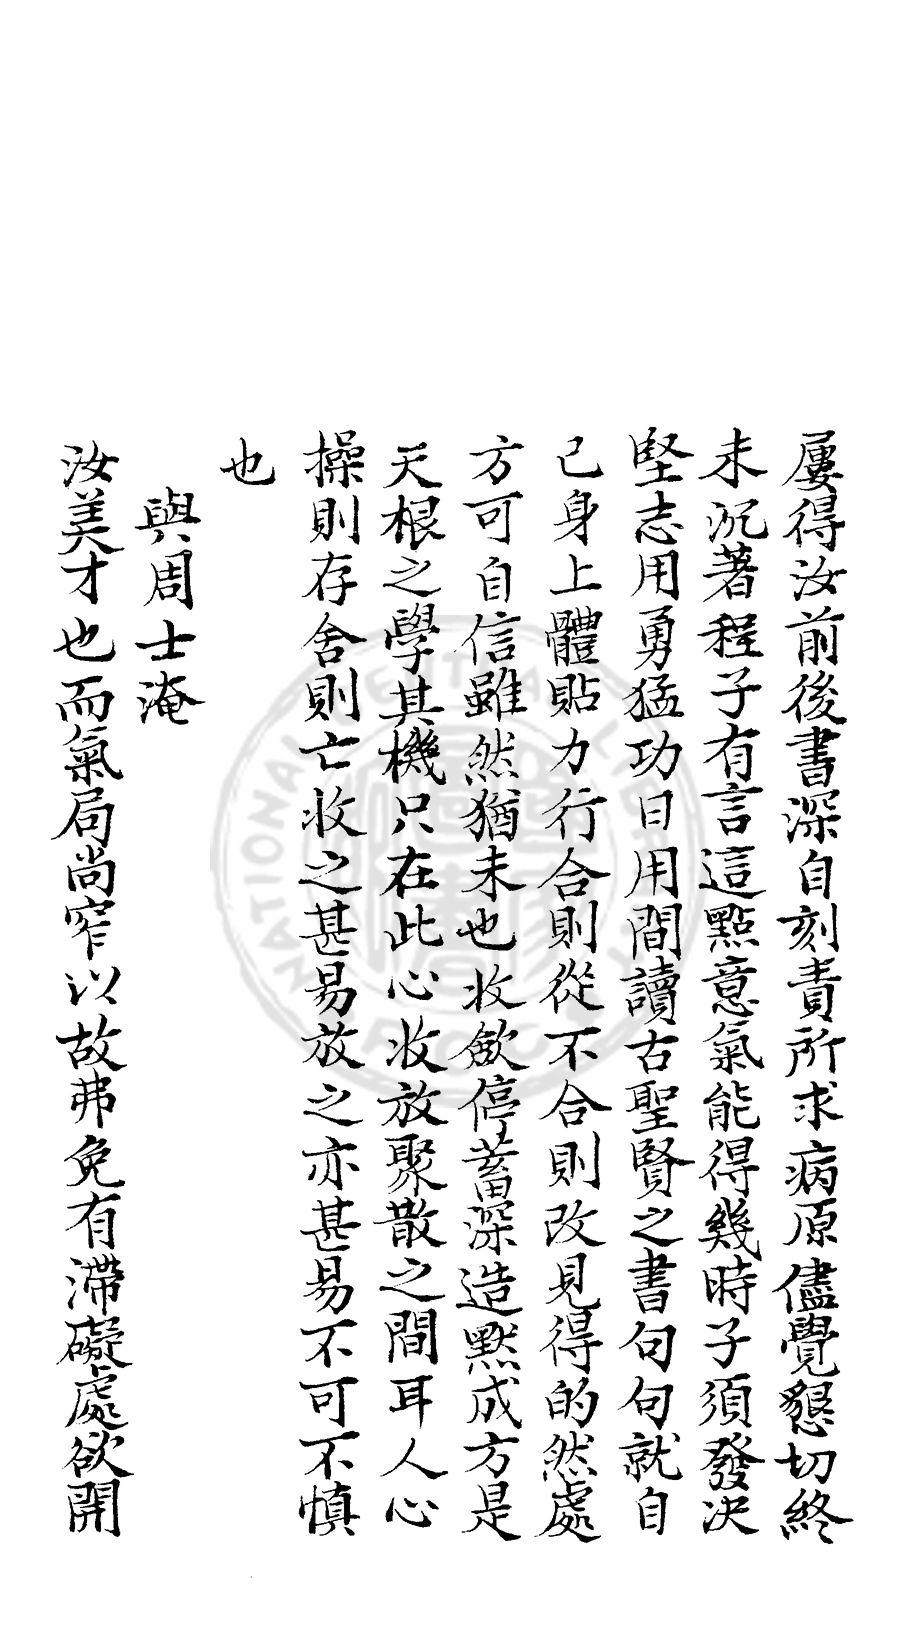 屢得汝前後書深自刻責所求病原儘覺懇切終
未沉著程子有言這點意氣能得幾時子須發决
堅志用勇猛功日用間讀古聖賢之書句句就自
己身上體貼力行合則從不合則改見得的然處
方可自信雖然猶未也收斂停蓄深造默成方是
天根之學其機只在此心收放聚散之間耳人心
操則存舍則亡收之甚易放之亦甚易不可不慎
也
與周士淹
汝美才也而氣局尚窄以故弗免有滯礙處欲開
NATIONAL CENTRAL LIBRARY